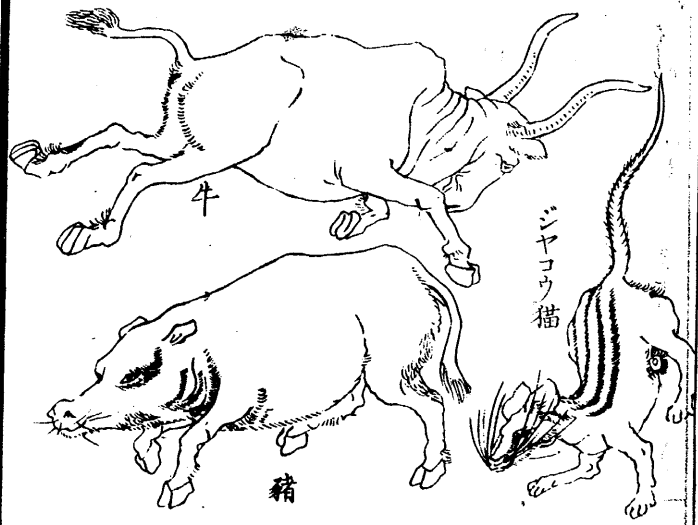 牛
ジヤコウ猫
豬